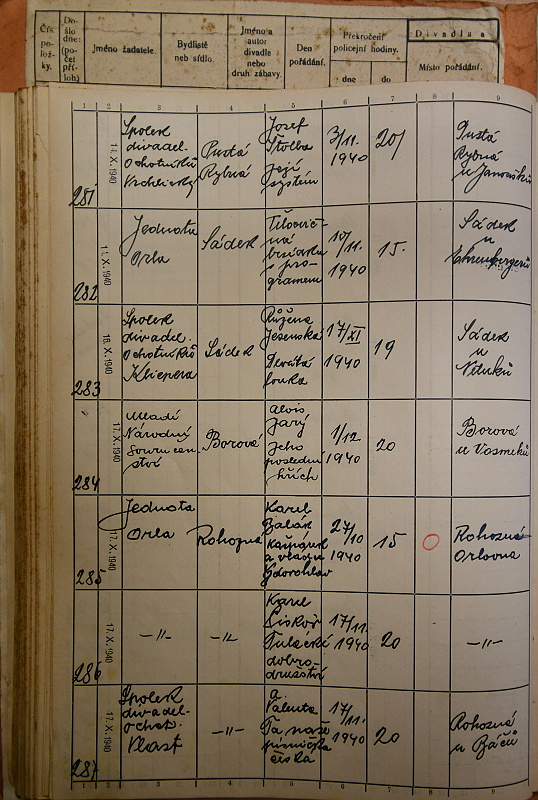 Čís.
po-
lož-
ky.
Do-
šlo
dne:
(po-
čet
pří-
loh)
Jméno žadatele.
Bydliště
neb sídlo.
Jméno a
autor
divadla
nebo
druh zábavy.
Den
pořádání.
Překročení
policejní hodiny.
dne
do
Divadla a
Místo pořádání.
1 2 3 4 5 6 7 8 9
281
14. X. 1940
Spolek
divadel.
ochotníků
Vrchlický
Pustá
Rybná
Josef
Štolba
Její
systém
3/11.
1940
20/
Pustá
Rybná
u Janoušků
282
14. X. 1940
Jednota
Orla
Sádek
besídka
s pro-
gramem
10/11.
1940
15.
Sádek
u
Ehrenbergerů
283
16. X. 1940
Spolek
divadel.
ochotníků
Klicpera
Sádek
Růžena
Jesenská
Devátá
louka
17/XI
1940
19
Sádek
u
284
17. X. 1940
Mladí
Národní
souručen-
ství
Borová
Alois
Jarý
Jeho
poslední
hřích
1/12
1940
20
Borová
u Vosmeků
285
17. X. 1940
Jednota
Orla
Rohozná
Karel
Balák
Kašpárek
a vládce
27/10
1940
15
Rohozná
Orlovna
286
17. X. 1940
–"–
–"–
Karel
Liskoř
Tulácké
dobro-
družství
17/11.
1940
20
–"–
287
17. X. 1940
Spolek
divadel.
ochot.
Vlast
–"–
a.
Valenta
Ta naše
písnička
česká
17/11.
1940
20
Rohozná
u Báčů
1 2 3 4 5 6 7 8 9